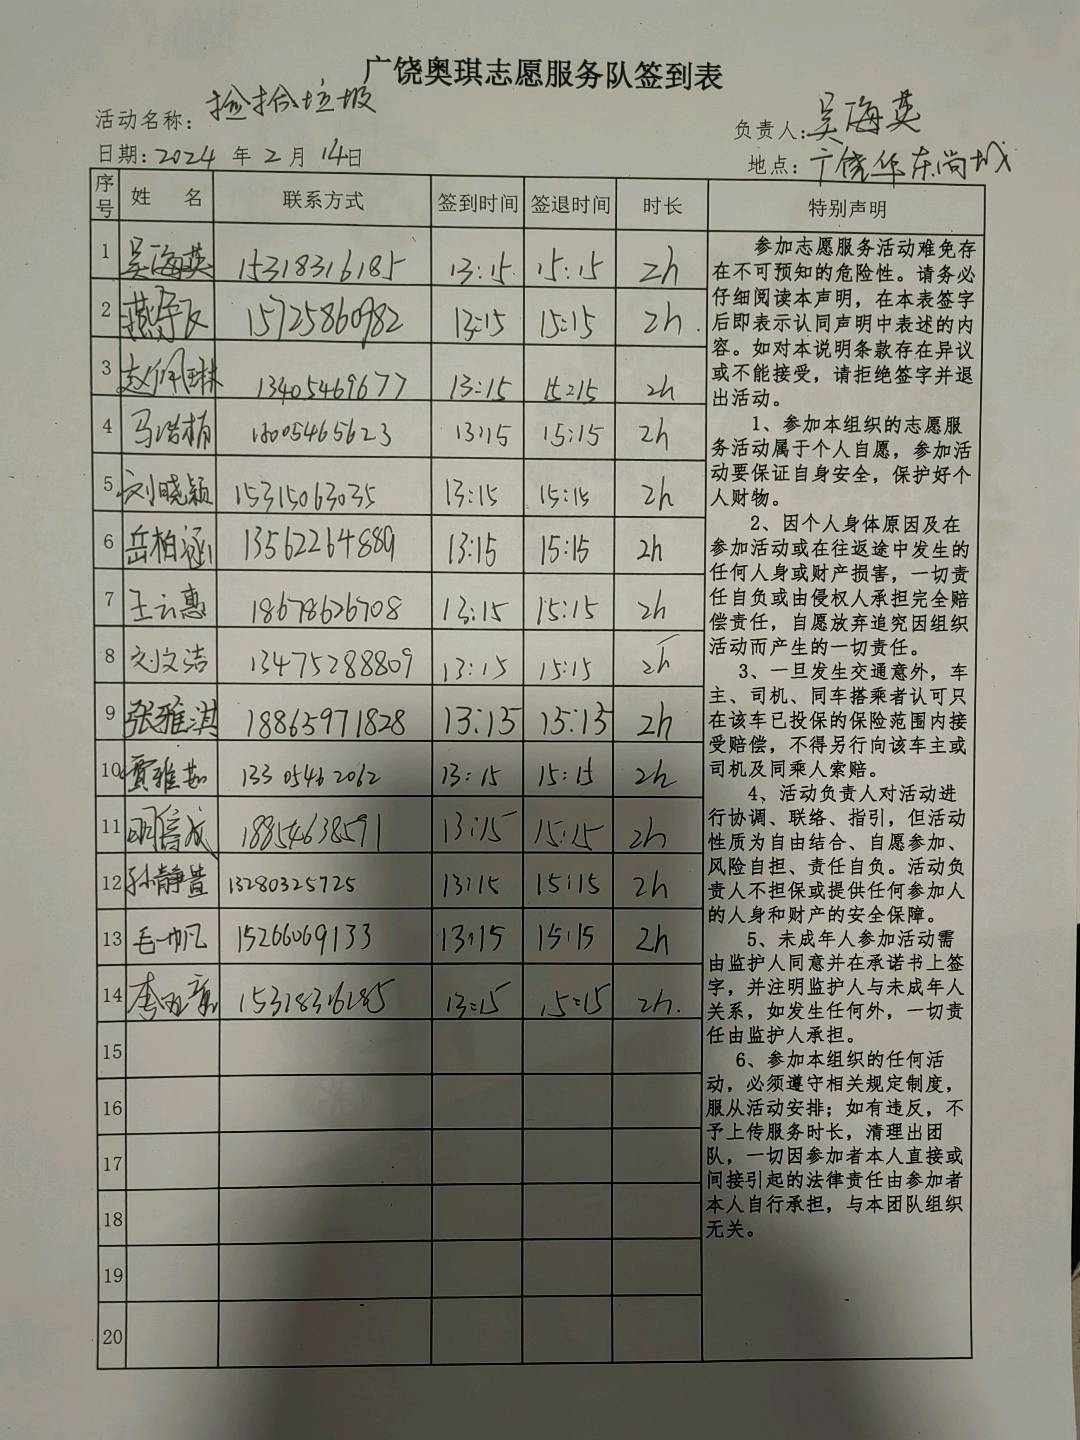 广饶奥琪志愿服务队签到表
活动名称：捡拾垃圾
负责人：吴海英
日期：2024 年 2 月 14日
地点：广饶华东尚城
序号 姓 名 联系方式 签到时间 签退时间 时长 特别声明
1 吴海英 15318316185 13:15 15:15 2h
2 15725860982 13:15 15:15 2h
3 赵佩琳 13405469677 13:15 15:15 2h
4 马浩楠 13005465623 13:15 15:15 2h
5 刘晓颖 15315063035 13:15 15:15 2h
6 岳柏涵 13562264889 13:15 15:15 2h
7 王云惠 18678626708 13:15 15:15 2h
8 刘文洁 13475288809 13:15 15:15 2h
9 张雅淇 18865971828 13:15 15:15 2h
10 贾雅茹 13305462062 13:15 15:15 2h
11 18854638591 13:15 15:15 2h
12 孙静萱 13280325725 13:15 15:15 2h
13 毛一帆 15266069133 13:15 15:15 2h
14 15318316185 13:15 15:15 2h
15
16
17
18
19
20
参加志愿服务活动难免存
在不可预知的危险性。请务必
仔细阅读本声明，在本表签字
后即表示认同声明中表述的内
容。如对本说明条款存在异议
或不能接受，请拒绝签字并退
出活动。
1、参加本组织的志愿服
务活动属于个人自愿，参加活
动要保证自身安全，保护好个
人财物。
2、因个人身体原因及在
参加活动或在往返途中发生的
任何人身或财产损害，一切责
任自负或由侵权人承担完全赔
偿责任，自愿放弃追究因组织
活动而产生的一切责任。
3、一旦发生交通意外，车
主、司机、同车搭乘者认可只
在该车已投保的保险范围内接
受赔偿，不得另行向该车主或
司机及同乘人索赔。
4、活动负责人对活动进
行协调、联络、指引，但活动
性质为自由结合、自愿参加、
风险自担、责任自负。活动负
责人不担保或提供任何参加人
的人身和财产的安全保障。
5、未成年人参加活动需
由监护人同意并在承诺书上签
字，并注明监护人与未成年人
关系，如发生任何外，一切责
任由监护人承担。
6、参加本组织的任何活
动，必须遵守相关规定制度，
服从活动安排；如有违反，不
予上传服务时长，清理出团
队，一切因参加者本人直接或
间接引起的法律责任由参加者
本人自行承担，与本团队组织
无关。